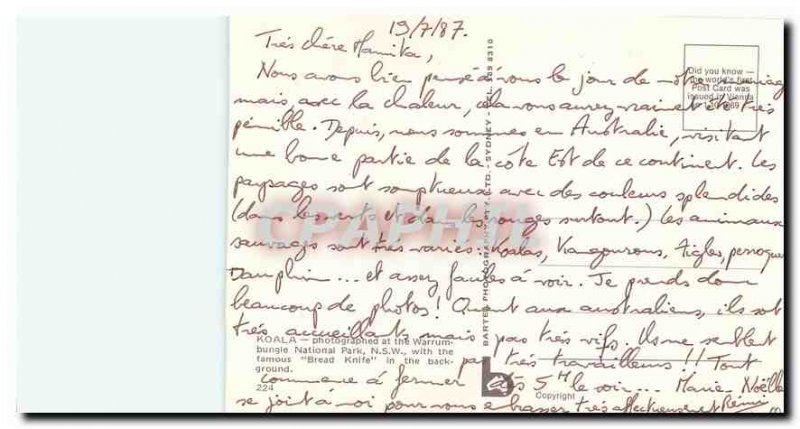 19/7/87.
Très chère Mamita,
Nous avons bien pensé à vous le jour de notre mariage
mais, avec la chaleur, cela vous aurez vraiment été très
pénible. Depuis, nous sommes en Australie, visitant
une bonne partie de la côte Est de ce continent. Les
paysages sont somptueux avec des couleurs splendides
(dans les verts et dans les rouges surtout.) Les animaux
sauvages sont très variés : Koalas, Kangourous, Aigles, perroquets
Dauphin... et assez faciles à voir. Je prends donc
beaucoup de photos! Quant aux australiens, ils sont
très accueillants mais pas très vifs. Ils ne semblent
pas très travailleurs!! Tout
commence à fermer dès 5H le soir... Marie-Noëlle
se joint à moi pour vous embrasser très affectueusement Rémi
Did you know —
the world's first
Post Card was
issued in Vienna
KOALA — photographed at the Warrum-
bungle National Park, N.S.W., with the
famous "Bread Knife" in the back-
ground.
224
BARTEL PHOTOGRAPHY PTY. LTD. - SYDNEY - TEL.
Copyright
CPAPHIL